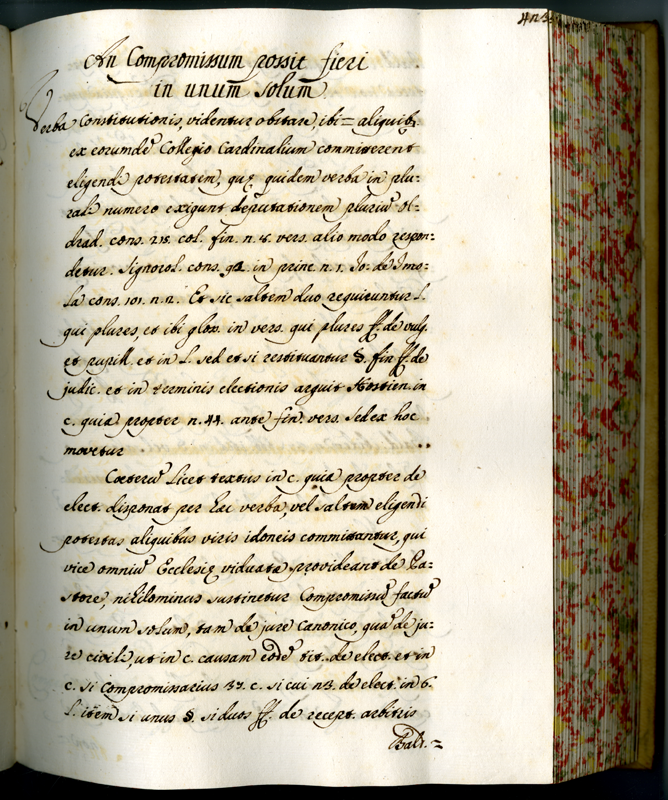 An Compromissum possit fieri
in unum solum
Verba Constitutionis, videntur obstare, ibi = aliquibꝫ
ex eorumdē Collegio Cardinalium committerent
eligendi potestatem, quę quidem verba in plu-
rali numero exigunt deputationem pluriū Ol-
drad. cons. 218. col. fin. n. 8. vers. alio modo respon-
detur. Signorol. cons. in princ. n. 1. Jo. de Imo-
la cons. 101. n. 2. Et sic saltem duo requiruntur l.
qui plures, et ibi glos. in vers. qui plures ff. de vulg.
et pupill. et in l. sed et si restituantur §. fin ff. de
judic. et in terminis electionis arguit Hostien. in
c. quia propter n. 44. ante fin. vers. Sed ex hoc
movetur
Coeterū Licet textus in c. quia propter de
elect. disponat per hæc verba, vel saltem eligendi
potestas aliquibus viris idoneis committantur, qui
vice omniū Ecclesię viduatę provideant de Pa-
store, nihilominus sustinetur Compromissū factū
in unum solum, tam de jure Canonico, quā de ju-
re civili, ut in c. causam eodē tit. de elect. et in
c. si compromissarius 37. c. si cui n3. de elect. in 6.
l. item si unus §. si duos ff. de recept. arbitris
Bald. =